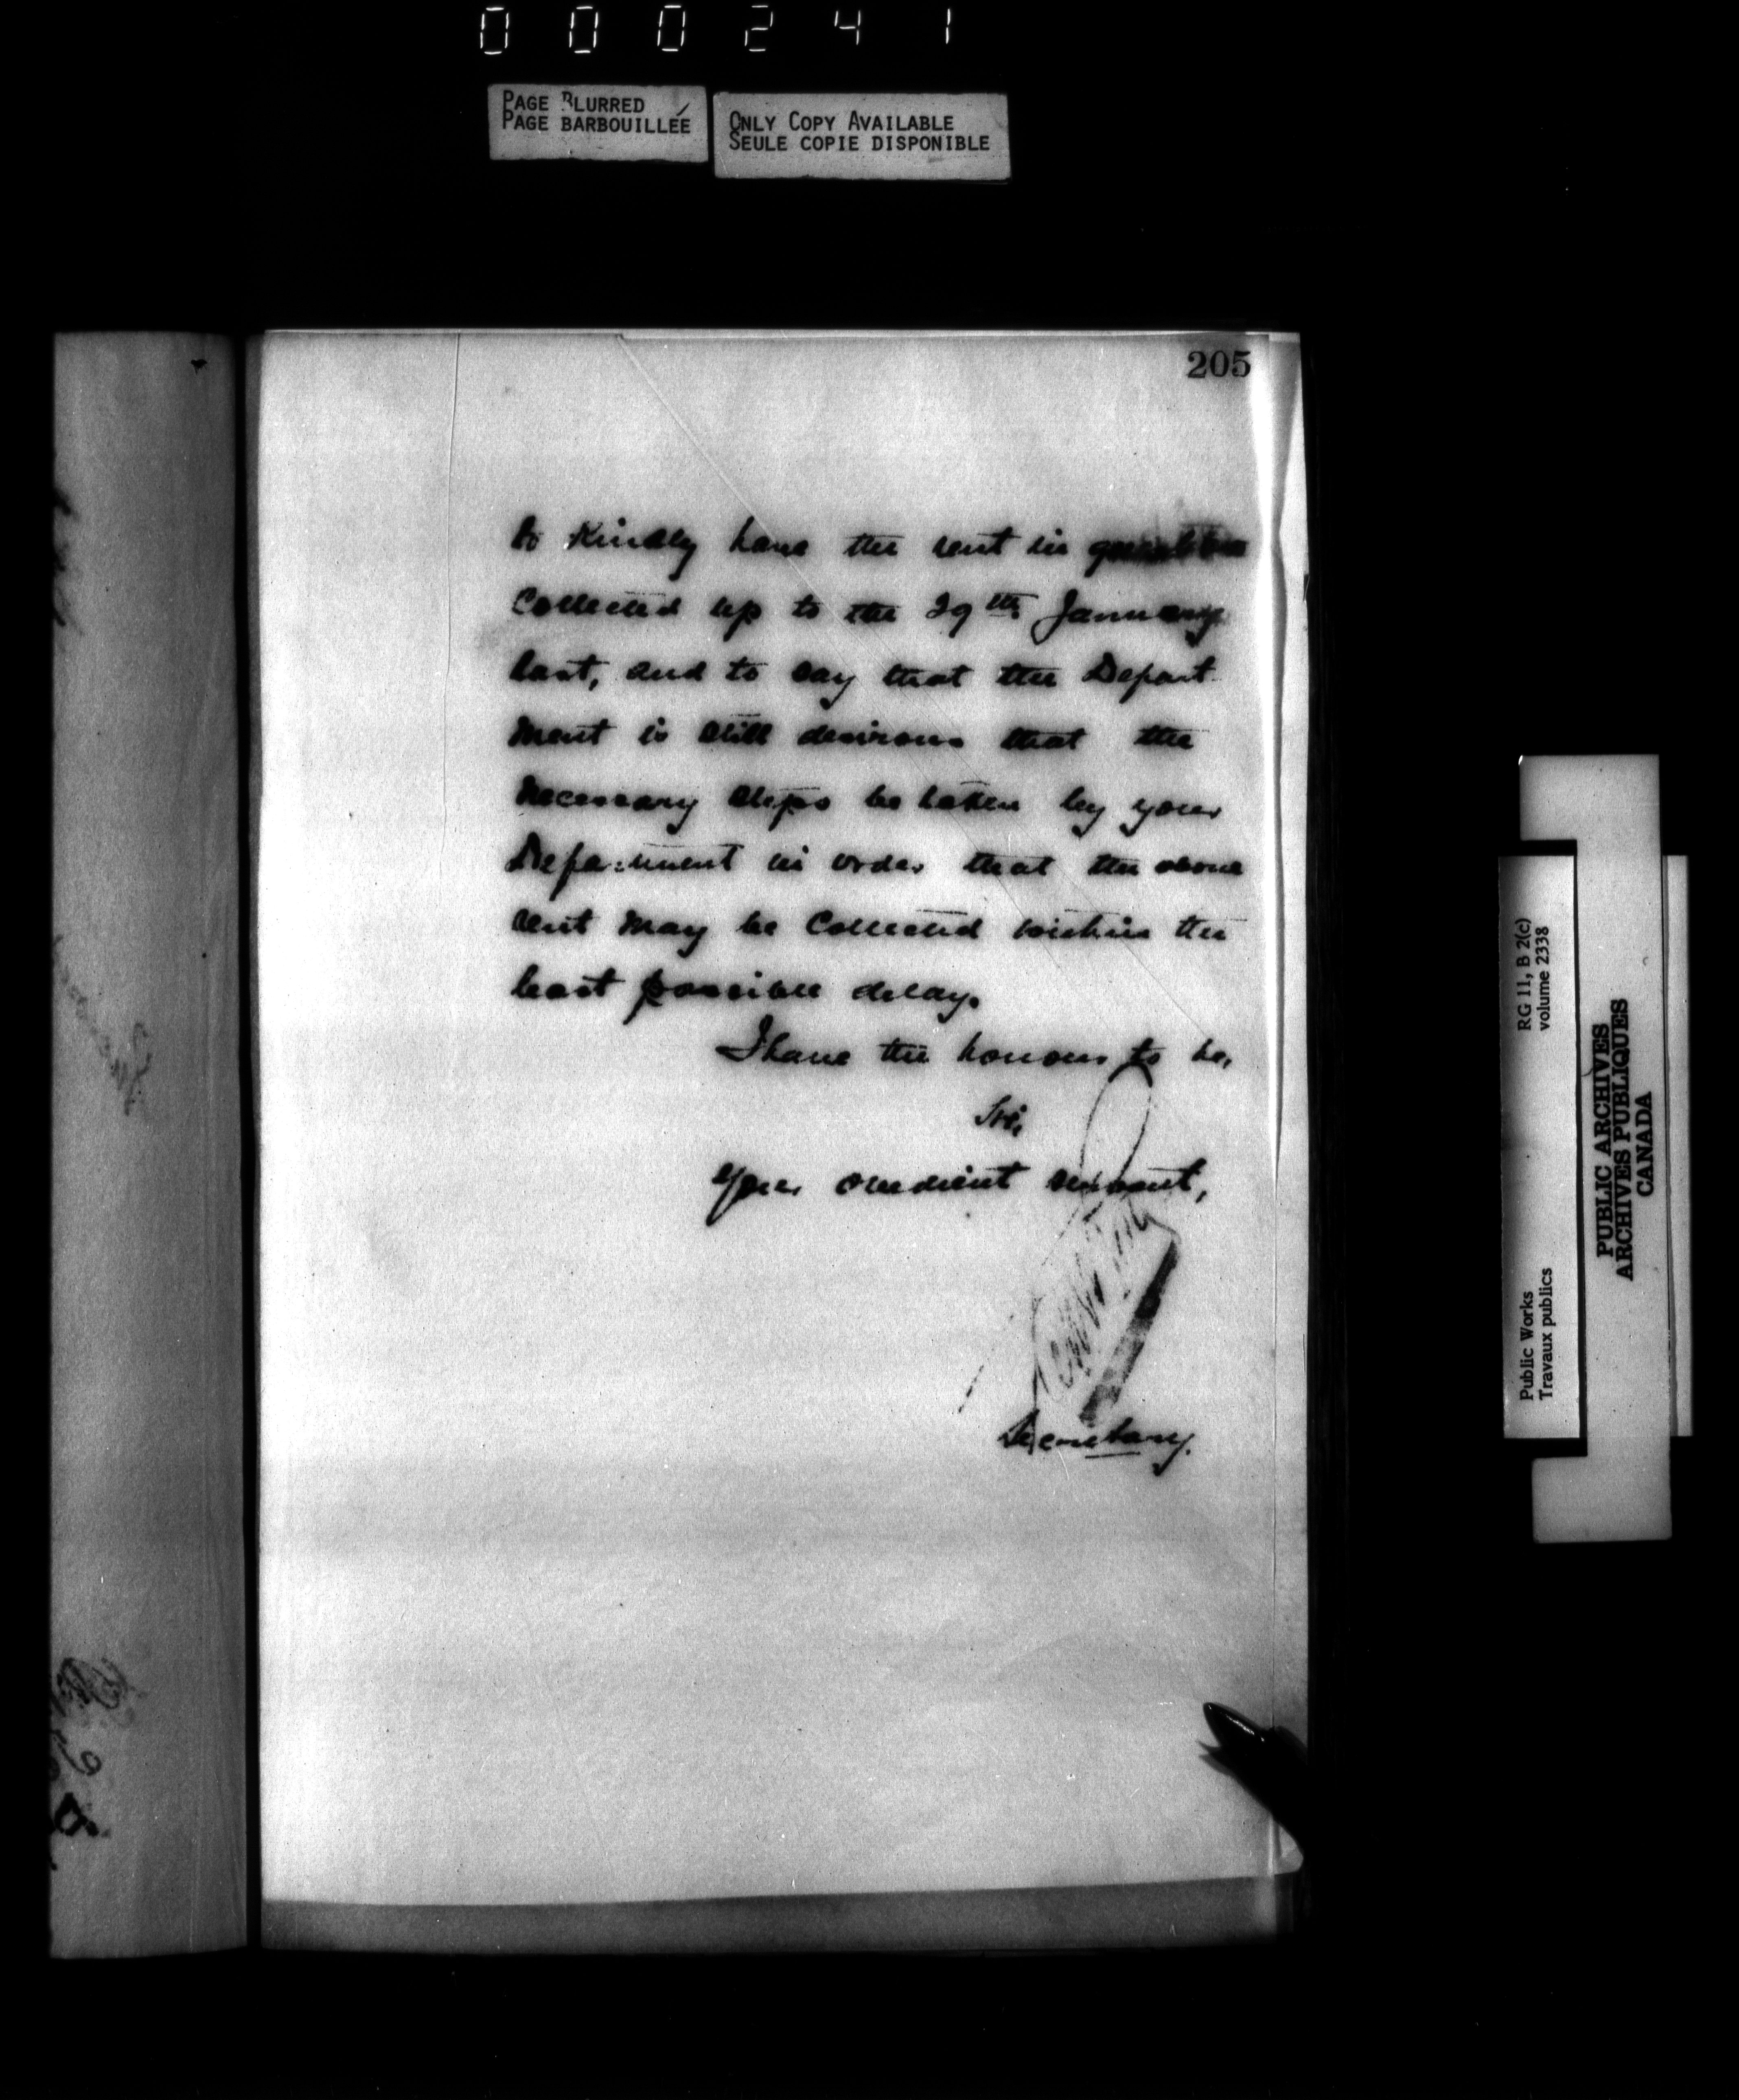 000241
PAGE BLURRED
PAGE BARBOUILLÉE
ONLY COPY AVAILABLE
SEULE COPIE DISPONIBLE
205
to kindly have the rent in question
collected up to the 29th January
last, and to say that the Depart-
ment is still desirous that the
necessary steps be taken by your
Department in order that the above
rent may be collected within the
least possible delay.
I have the honour to be,
Sir,
Your obedient servant,
Secretary.
Public Works
Travaux publics
RG 11, B 2(c)
volume 2338
PUBLIC ARCHIVES
ARCHIVES PUBLIQUES
CANADA